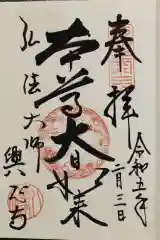 奉拝
令和五年
二月三日
本尊大日如来
弘法大師
興隆寺